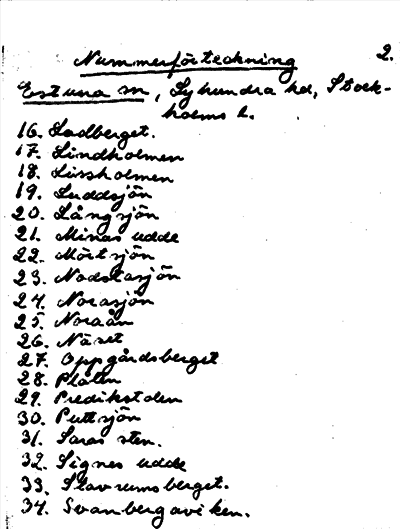 2.
Nummerförteckning
Estuna sn, Lyhundra hd, Stock-
holms l.
16. Ladberget.
17. Lindholmen
18. Lissholmen
19. Luddsjön
20. Långsjön
21. Minas udde
22. Mörtsjön
23. Nodstasjön
24. Norasjön
25. Noraån
26. Näset
27. Oppgårdsberget
28. Plåten
29. Predikstolen
30. Puttsjön
31. Saras sten.
32. Signes udde
33. Stavrumsberget.
34. Svanbergaviken.